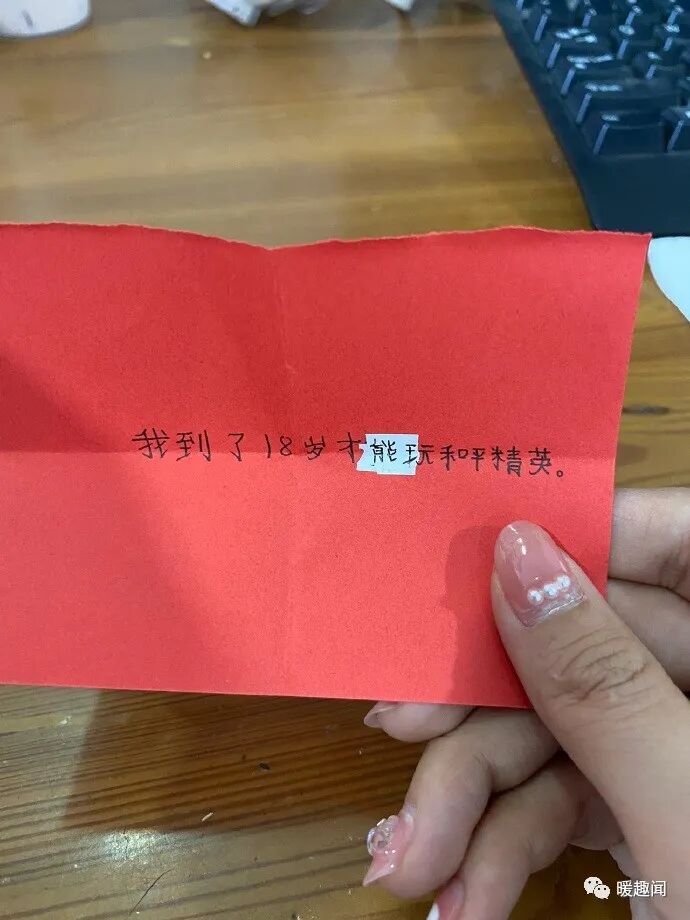 我到了18岁才能玩和平精英。
暖趣闻